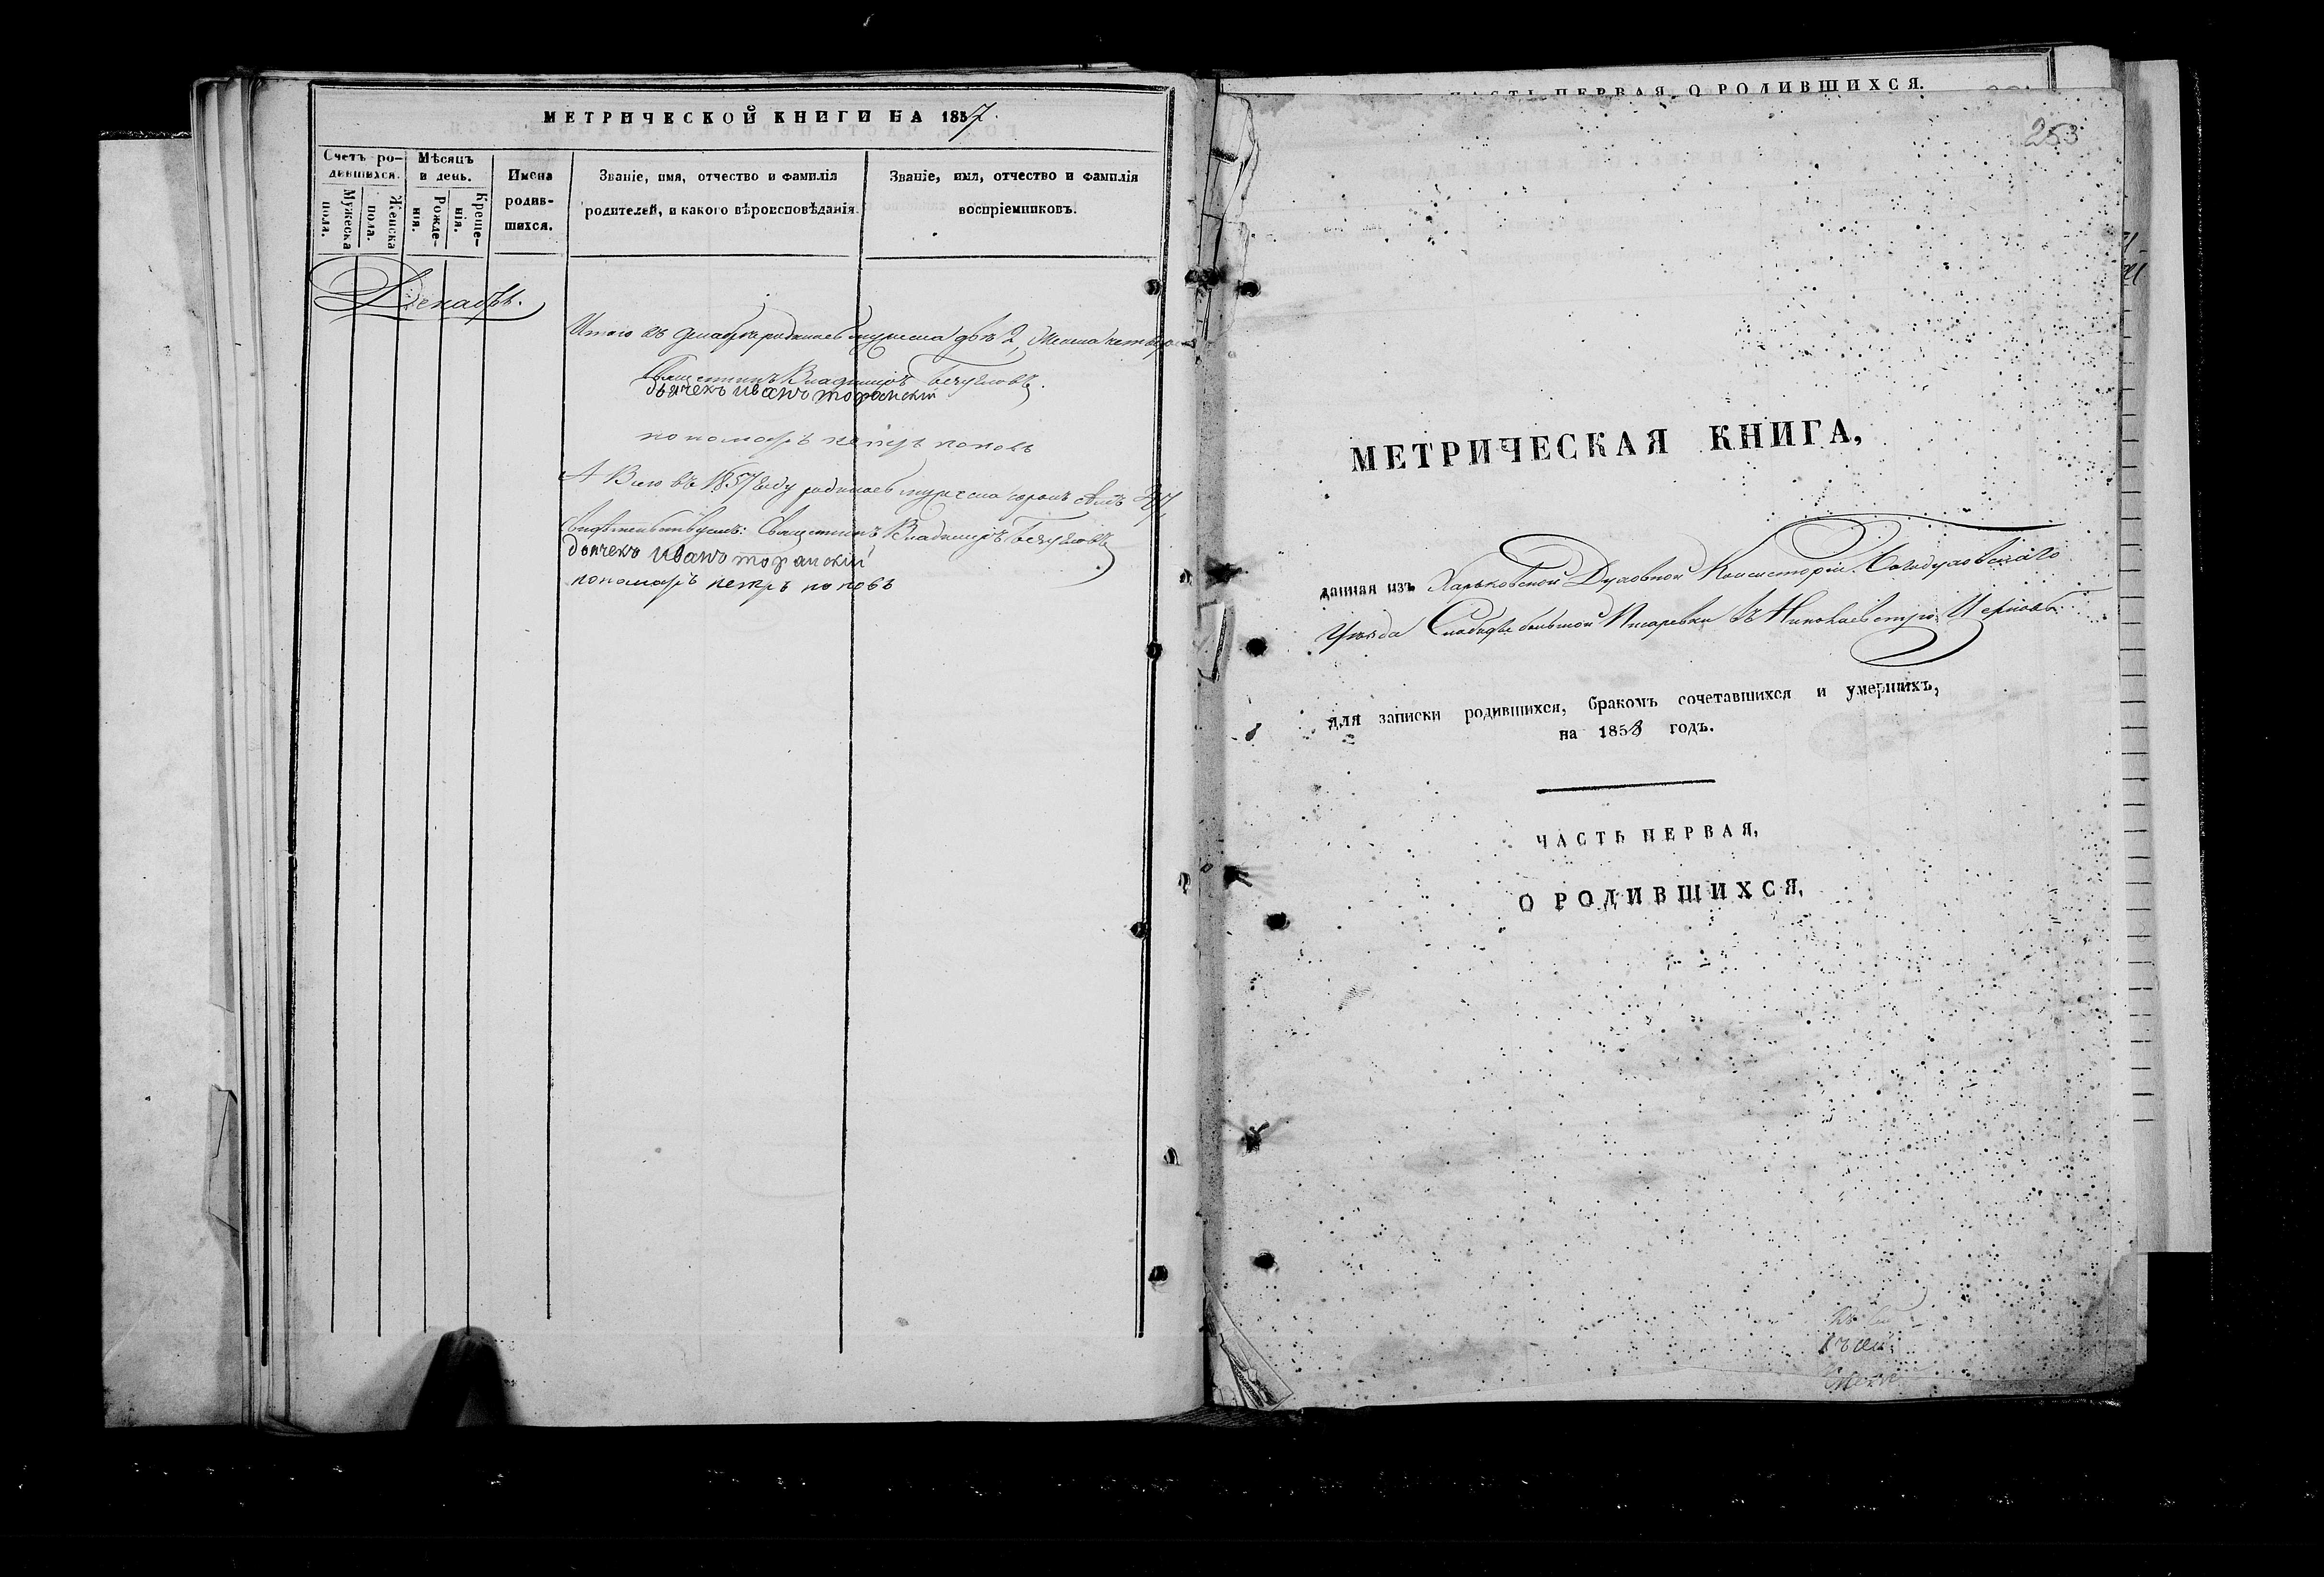 МЕТРИЧЕСКОЙ КНИГИ НА 1857.
Счетъ ро-
дившихся.
Мужеска
пола.
Женска
пола.
Мѣсяцъ
и день.
Рожде-
нія.
Креще-
нія.
Имена
родив-
шихся.
Званіе, имя, отчество и фамилія
родителей, и какого вѣроисповѣданія.
Званіе, имя, отчество и фамилія
воспріемниковъ.
Декабрь.
Итого въ декабрѣ родилось мужеска два 2, женска
Священникъ Владиміръ
дьячекъ иванъ торанскій
пономарь петръ поповъ
А Всего въ 1857 году родилось мужеска сорокъ
Священникъ Владиміръ
дьячекъ иванъ торанскій
пономарь петръ поповъ
ЧАСТЬ ПЕРВАЯ О РОДИВШИХСЯ.
253
МЕТРИЧЕСКАЯ КНИГА,
данная изъ Харьковской Духовной Консисторіи Богодуховскаго
Уѣзда Слободы большой Писаревки въ Николаевскую Церковь
для записки родившихся, бракомъ сочетавшихся и умершихъ,
на 1858 годъ.
ЧАСТЬ ПЕРВАЯ,
О РОДИВШИХСЯ,